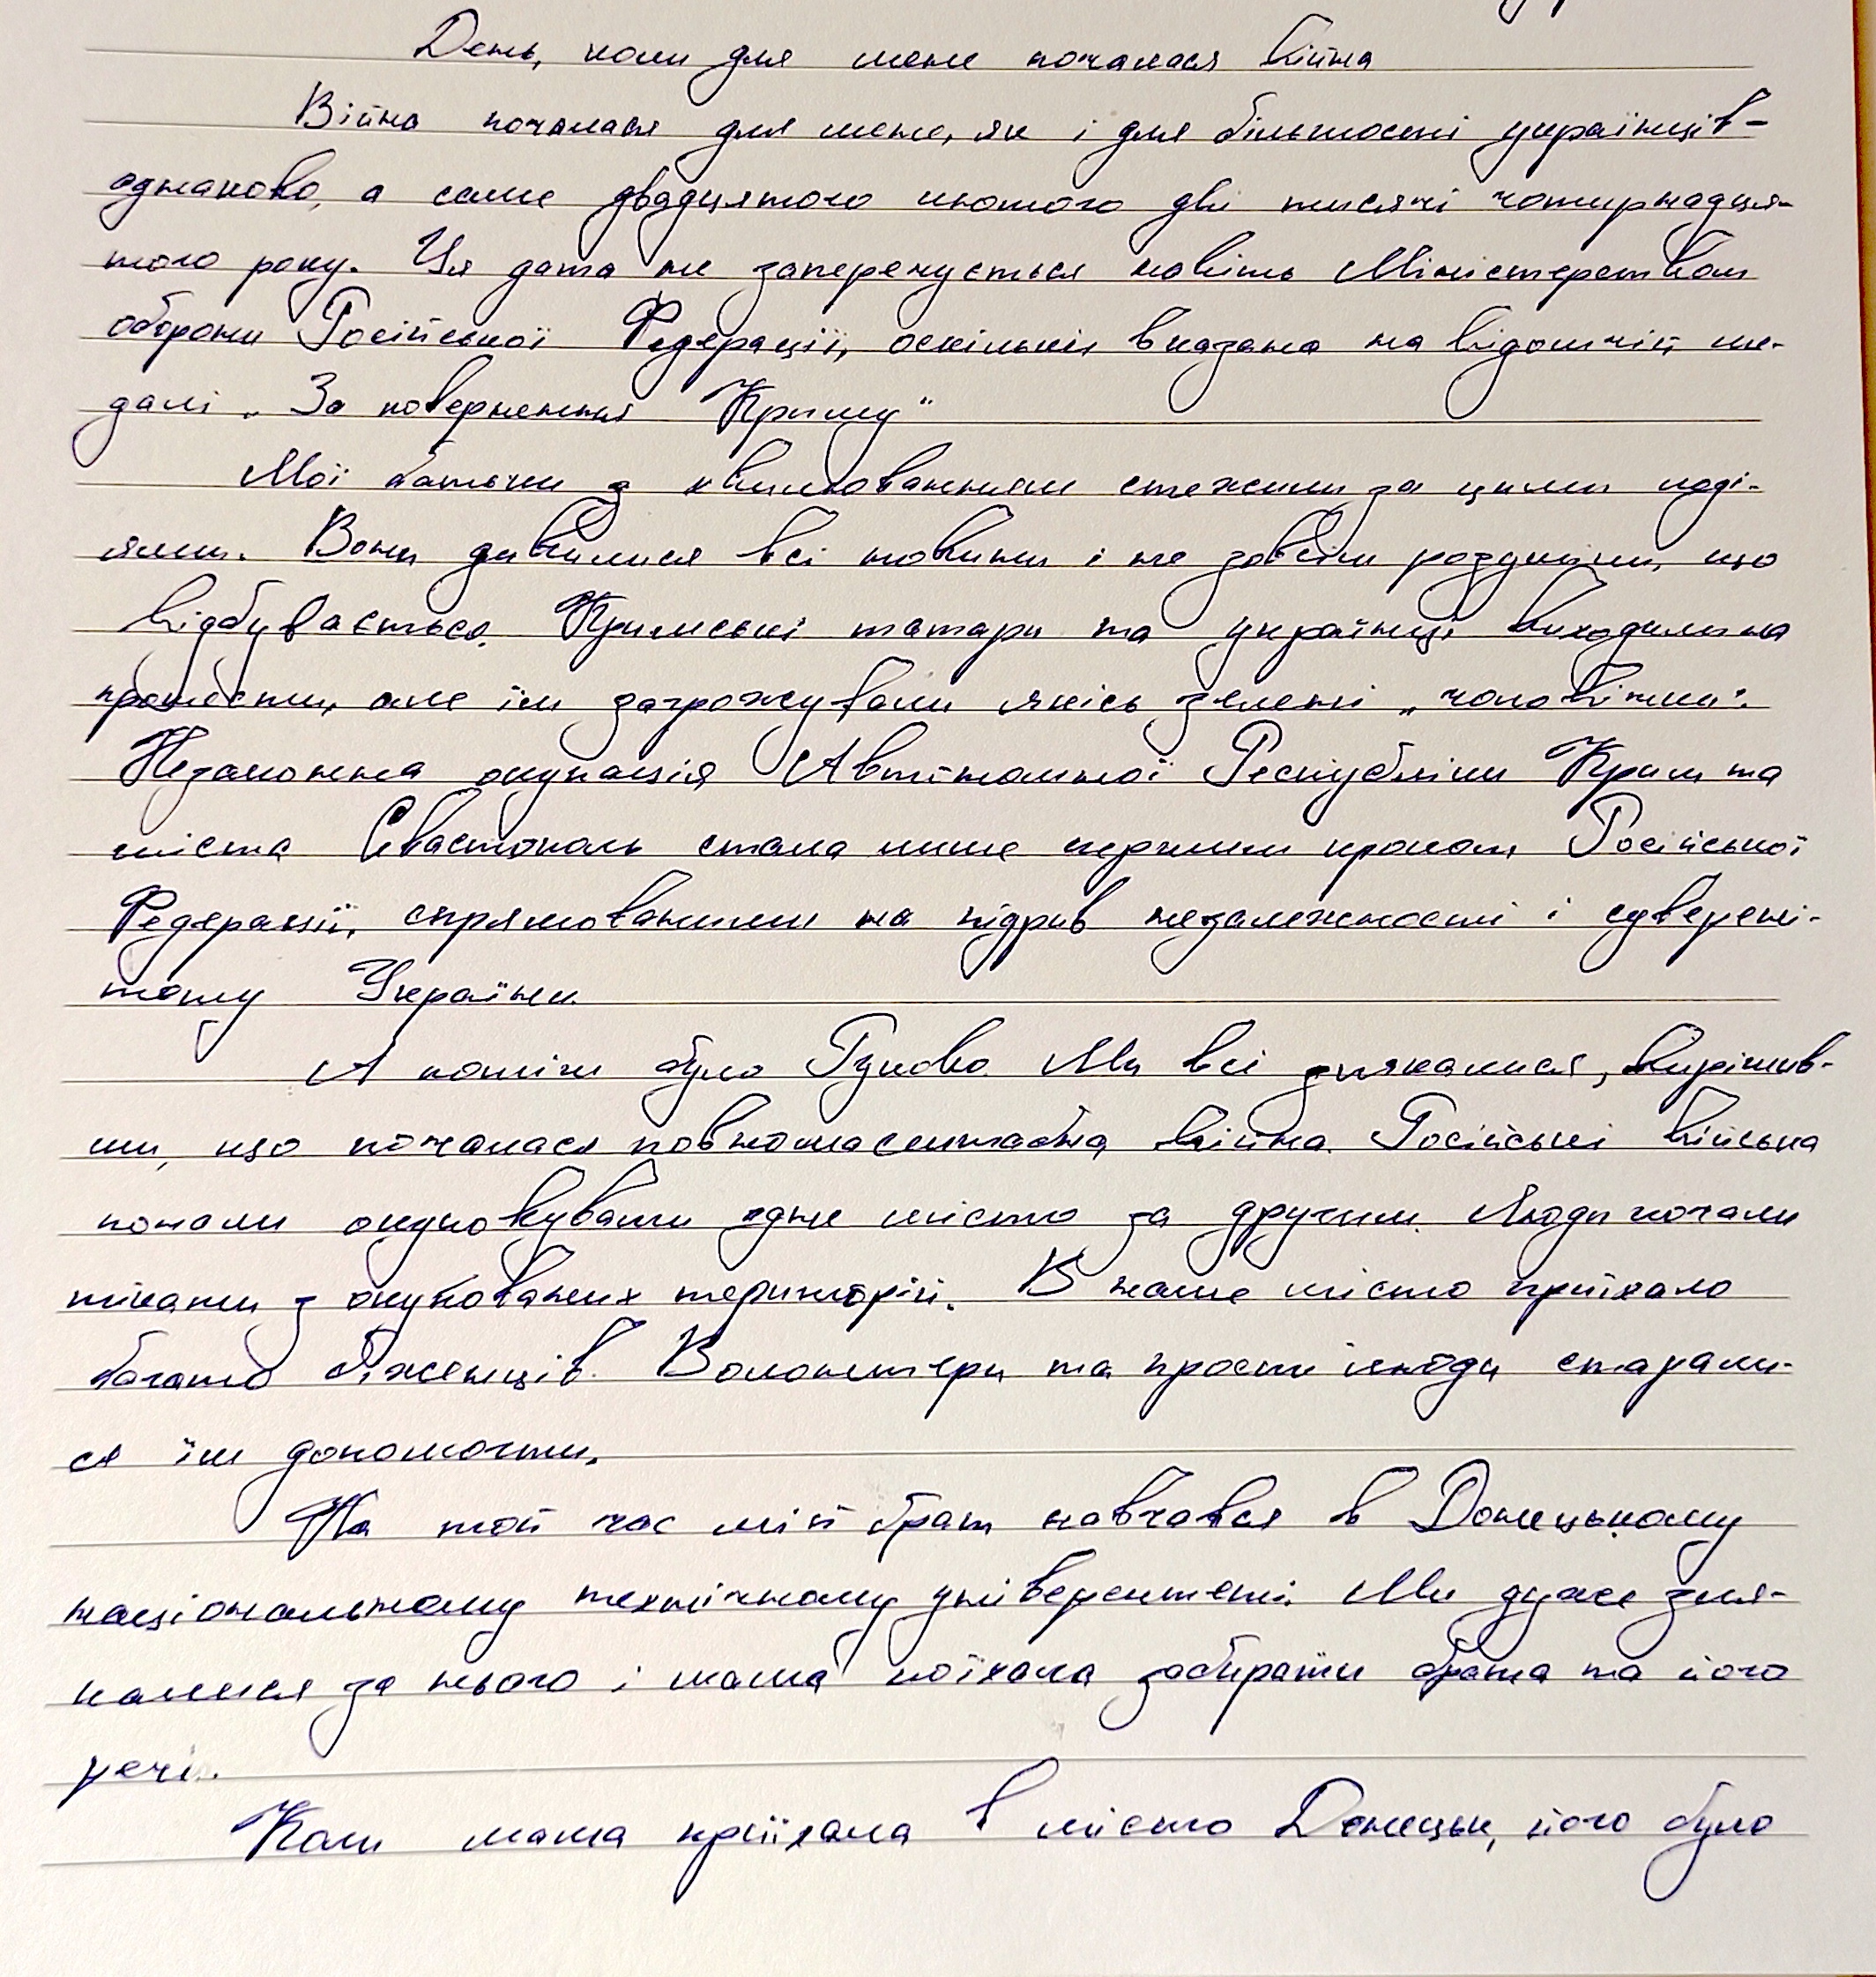 День, коли для мене почалася війна
Війна почалася для мене, як і для більшості українців -
однаково, а саме двадцятого лютого дві тисячі чотирнадця-
того року. Ця дата не заперечується навіть Міністерством
оборони Російської Федерації, оскільки вказана на відомчій ме-
далі „За повернення Криму"
Мої батьки з хвилюванням стежили за цими поді-
ями. Вони дивилися всі новини і не зовсім розуміли, що
відбувається. Кримські татари та українці виходили на
протести, але їм загрожували якісь зелені „чоловічки".
Незаконна окупація Автономної Республіки Крим та
міста Севастополь стала лише першим кроком Російської
Федерації, спрямованими на підрив незалежності і суверені-
тету України.
А потім було Гуково. Ми всі злякалися, вирішив-
ши, що почалася повномасштабна війна. Російські війська
почали окуповувати одне місто за другим. Люди почали
тікати з окупованих територій. В наше місто приїхало
багато біженців. Волонтери та прості люди старали-
ся їм допомогти.
На той час мій брат навчався в Донецькому
національному технічному університеті. Ми дуже зля-
калися за нього і мама поїхала забирати брата та його
речі.
Коли мама приїхала в місто Донецьк, його було